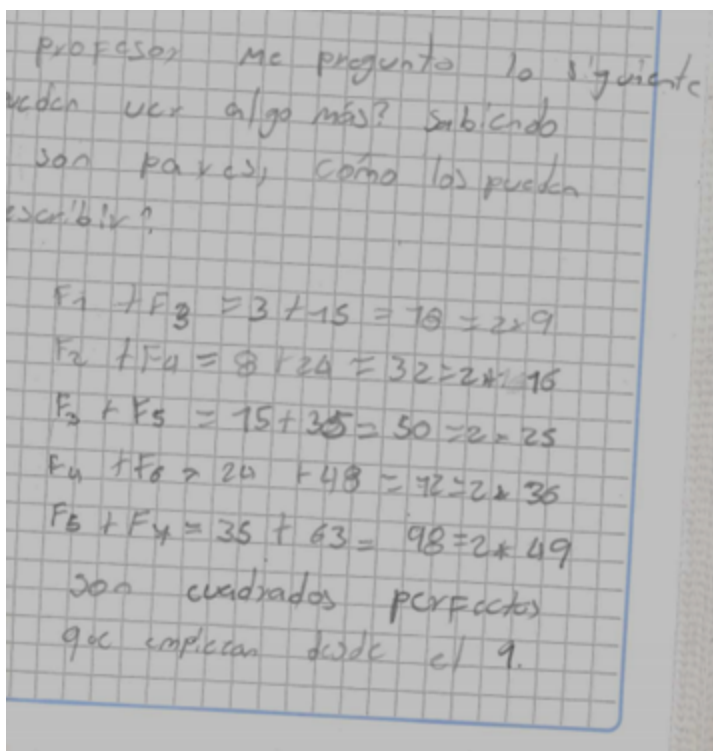 profesor me pregunto lo siguiente
ueden ver algo más? sabiendo
son pares, cómo los pueden
escribir?
F1 + F3 = 3 + 15 = 18 = 2*9
F2 + F4 = 8 + 24 = 32 = 2* 16
F3 + F5 = 15 + 35 = 50 = 2* 25
F4 + F6 = 24 + 48 = 72 = 2* 36
F5 + F7 = 35 + 63 = 98 = 2* 49
son cuadrados perfectos
que empiezan desde el 9.